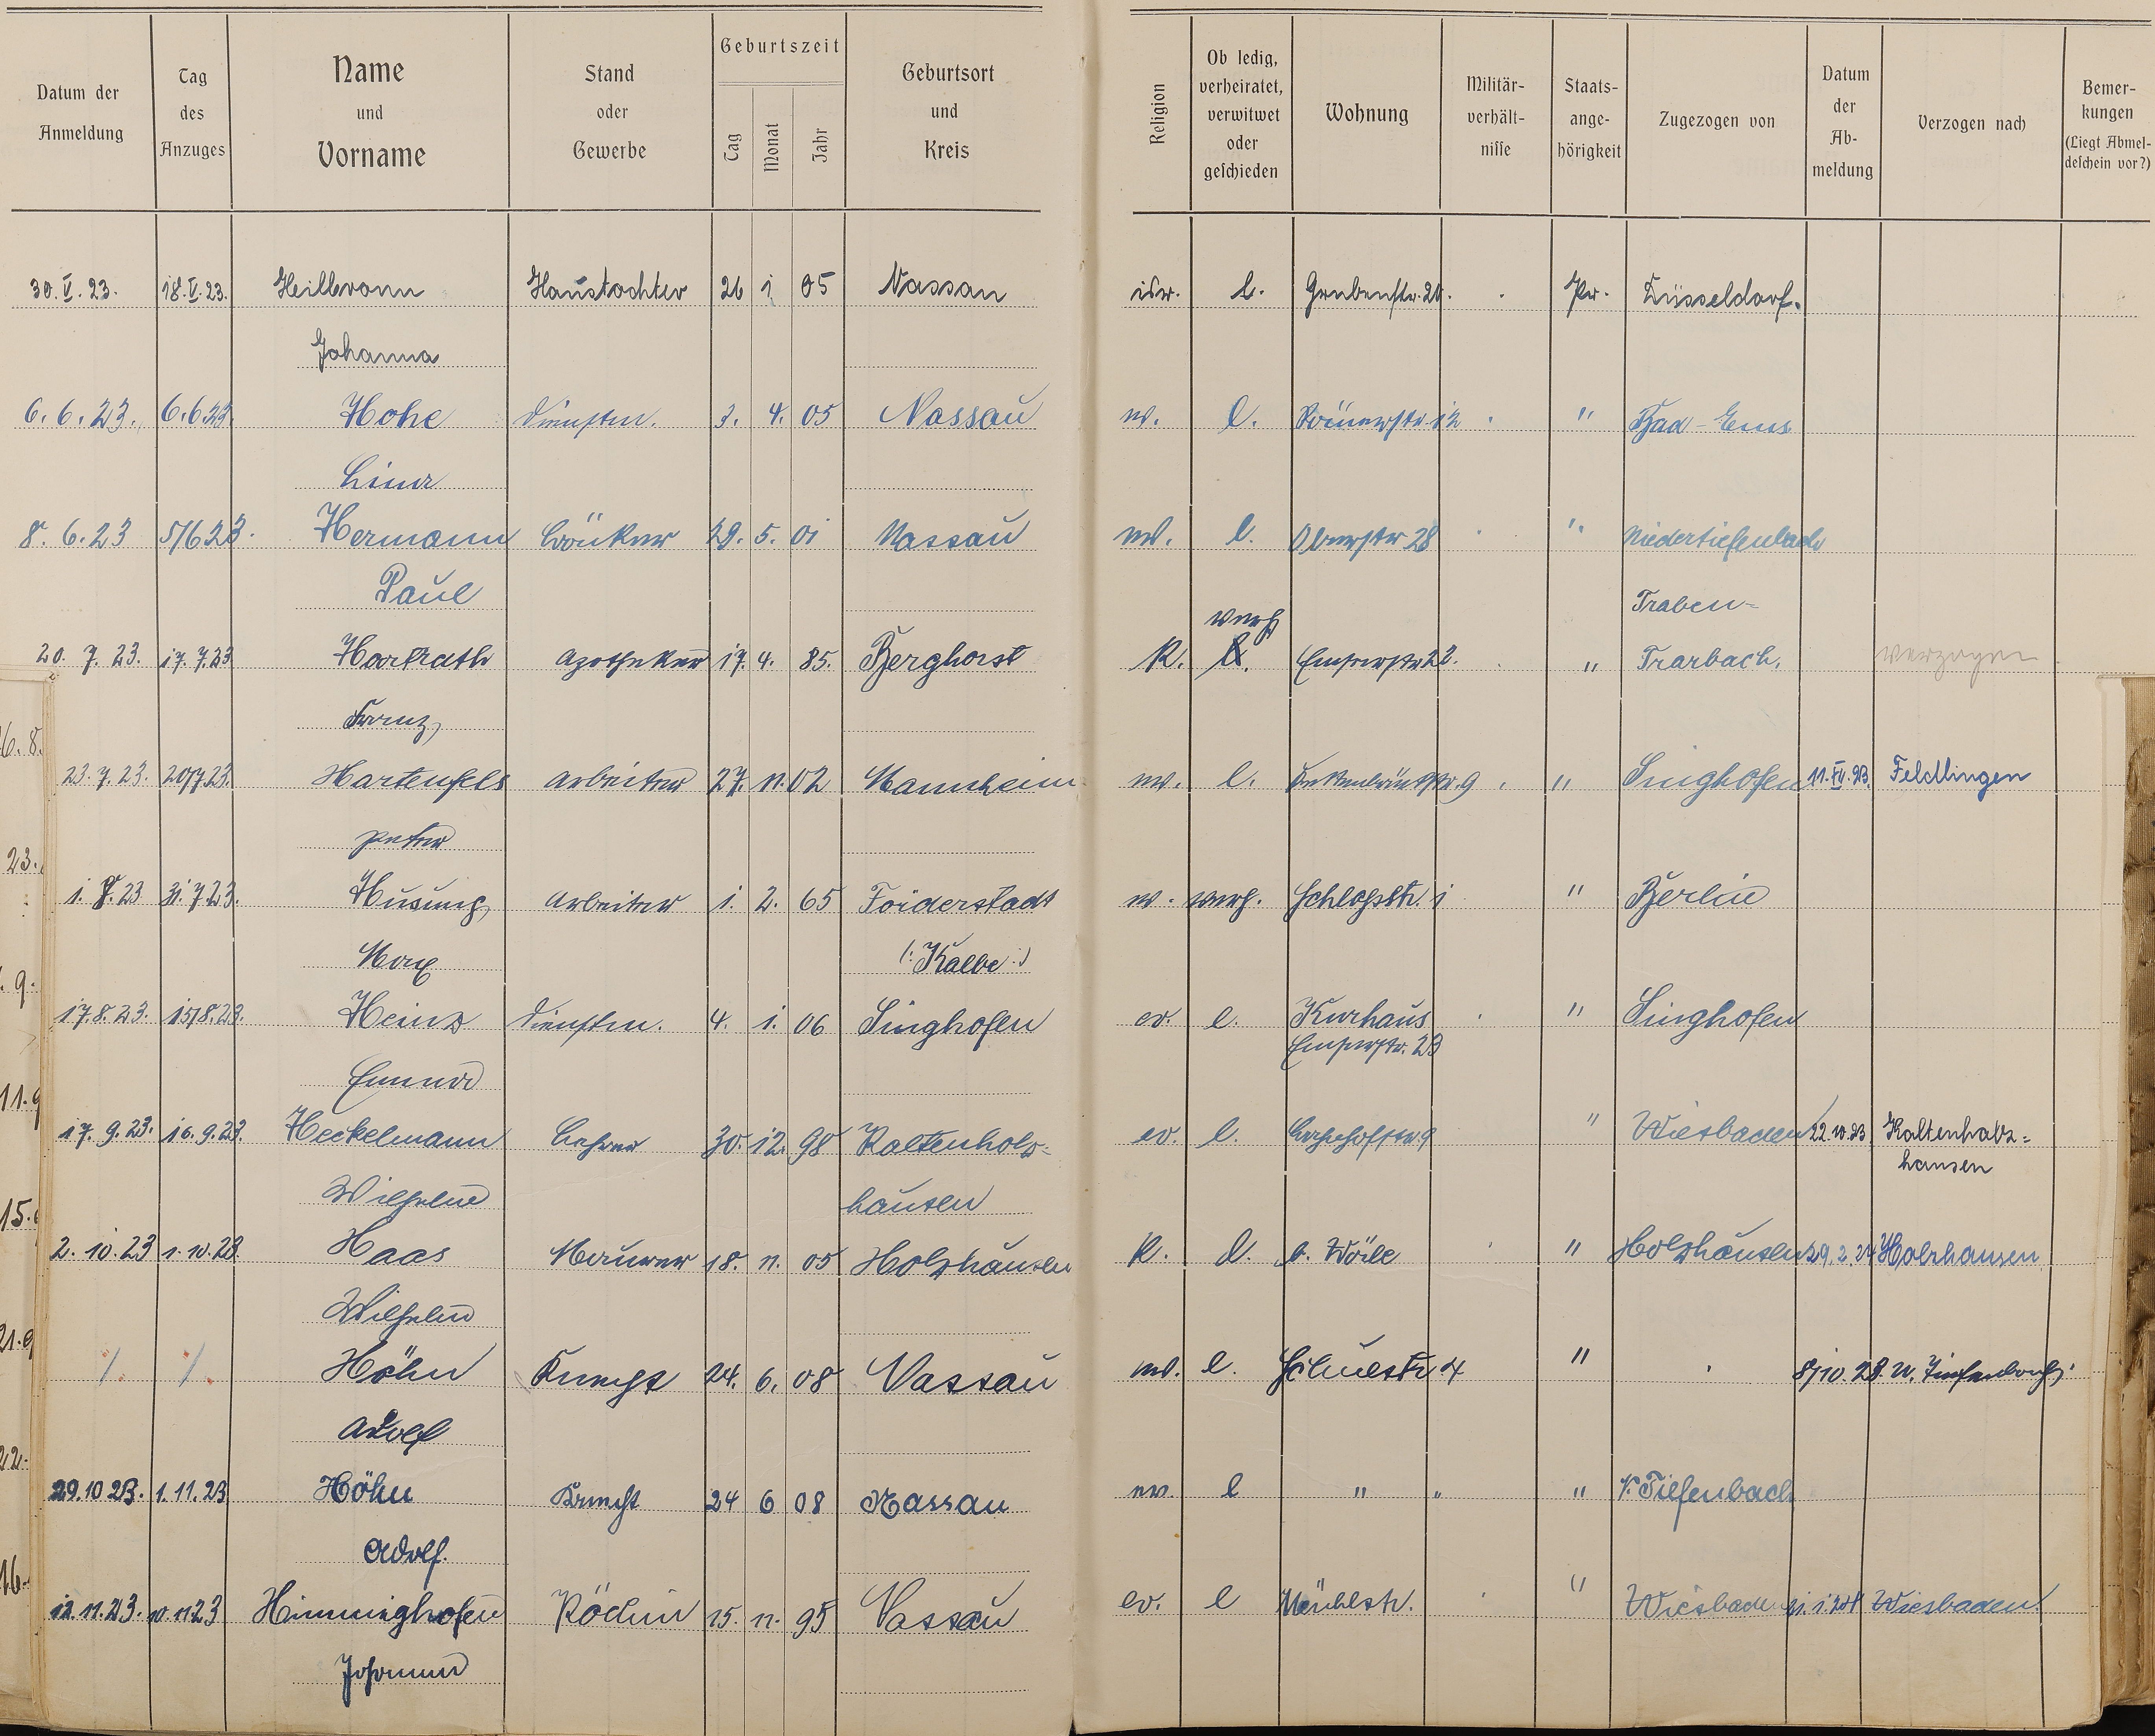 Datum der Anmeldung | Tag des Anzuges | Name und Vorname | Stand oder Gewerbe | Geburtszeit Tag Monat Jahr | Geburtsort und Kreis | Religion | Ob ledig, verheiratet, verwitwet oder geschieden | Wohnung | Militär-verhält-nisse | Staats-ange-hörigkeit | Zugezogen von | Datum der Ab-meldung | Verzogen nach | Bemer-kungen (Liegt Abmel-deschein vor?)
30. V. 23. 18. V. 23. Heilbronn Haustochter 26 1 05 Nassau isr. l. Grabenstr. 20. Pr. Düsseldorf.
Johanna
6. 6. 23. 6. 6 23. Hohe Dienstm. 3. 4. 05 Nassau ev. l. " Bad-Ems
Lina
8. 6. 23 5/6 23. Hermann 29. 5. 01 Nassau ev. l. Oberstr 28 " Niedertiefenbach
Paul
verh Traben-
20. 7. 23. 17. 7. 23 Hartrath Apotheker 17. 4. 85. Berghorst K. l. Emserstr 22. " Trarbach. verzogen
Franz
23. 7. 23. 20/7 23. Hartenfels Arbeiter 27. 11. 02 Mannheim ev. l. " Singhofen 11. XII. 23. Feldlingen
Peter
1. 8. 23 31. 7. 23. Husung Arbeiter 1. 2. 65 Förderstadt ev. verh. Schloßstr. 1 " Berlin
Max (: Kalbe :)
17. 8. 23. 15/8. 23. Heinz Dienstm. 4. 1. 06 Singhofen ev. l. Kurhaus " Singhofen
Emserstr. 23
Emma
17. 9. 23. 16. 9. 23. Heckelmann Lehrer 30. 12. 98 Kaltenholz- ev. l. Bahnhofstr 9 " Wiesbaden 22. 10. 23 Kaltenholz=
hausen
Wilhelm hausen
2. 10. 23 1. 10. 23. Haas Maurer 18. 11. 05 Holzhausen K. l. b. " Holzhausen 29. 2. 24 Holzhausen
Wilhelm
/. /. Höhn Knecht 24. 6. 08 Nassau ev. l. Schulestr 4 " 8/10. 23. N. Tiefenbach
Adolf
29. 10 23. 1. 11. 23 Höhn Knecht 24 6 08 Nassau ev. l " " " N. Tiefenbach
Adolf.
12. 11. 23. 10. 11 23 Himmighofen Köchin 15. 11. 95 Nassau ev. l Mühlstr. " Wiesbaden 21. 1. 24 Wiesbaden
Johanna